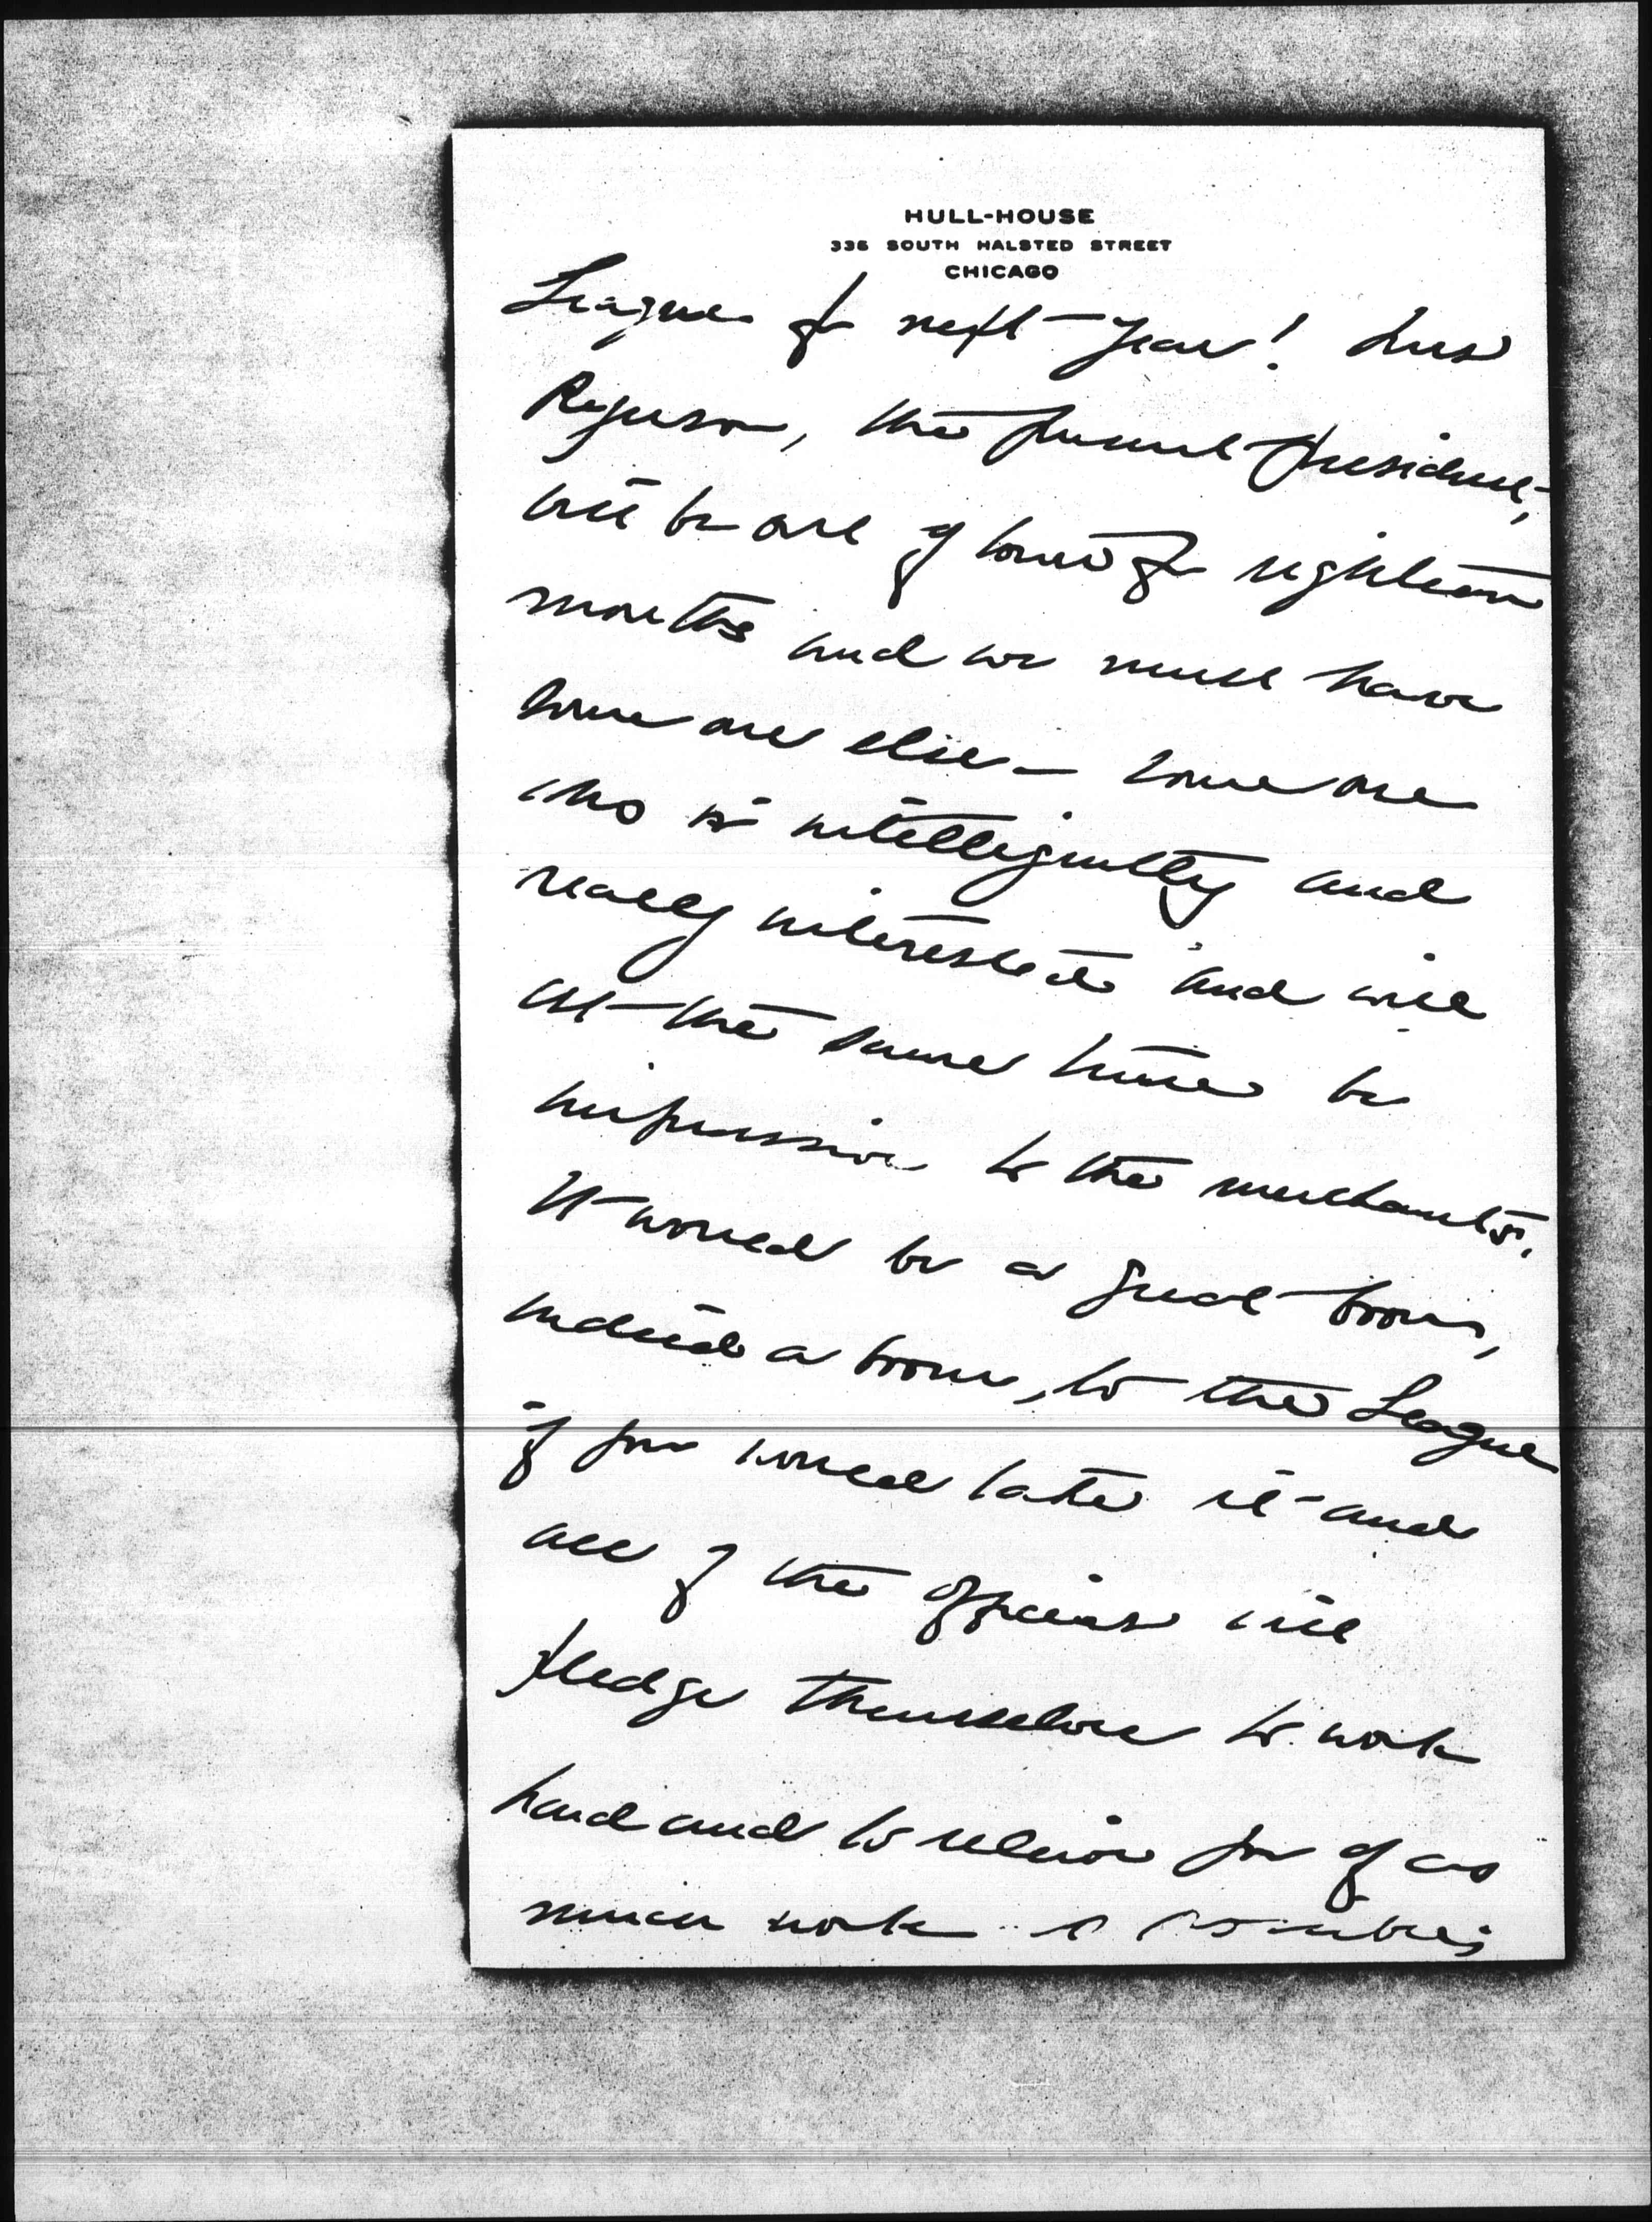 HULL-HOUSE
335 SOUTH HALSTED STREET
CHICAGO
League for next year! Mrs
Ryerson, the present President,
will be out of town for eighteen
months and we must have
some one else — some one
who is intelligently and
really interested and will
at the same time be
impressive to the merchants.
It would be a great boom,
indeed a boom, to the League
if you would take it and
all of the officers will
pledge themselves to work
hard and to relieve you of as
much work as possible;